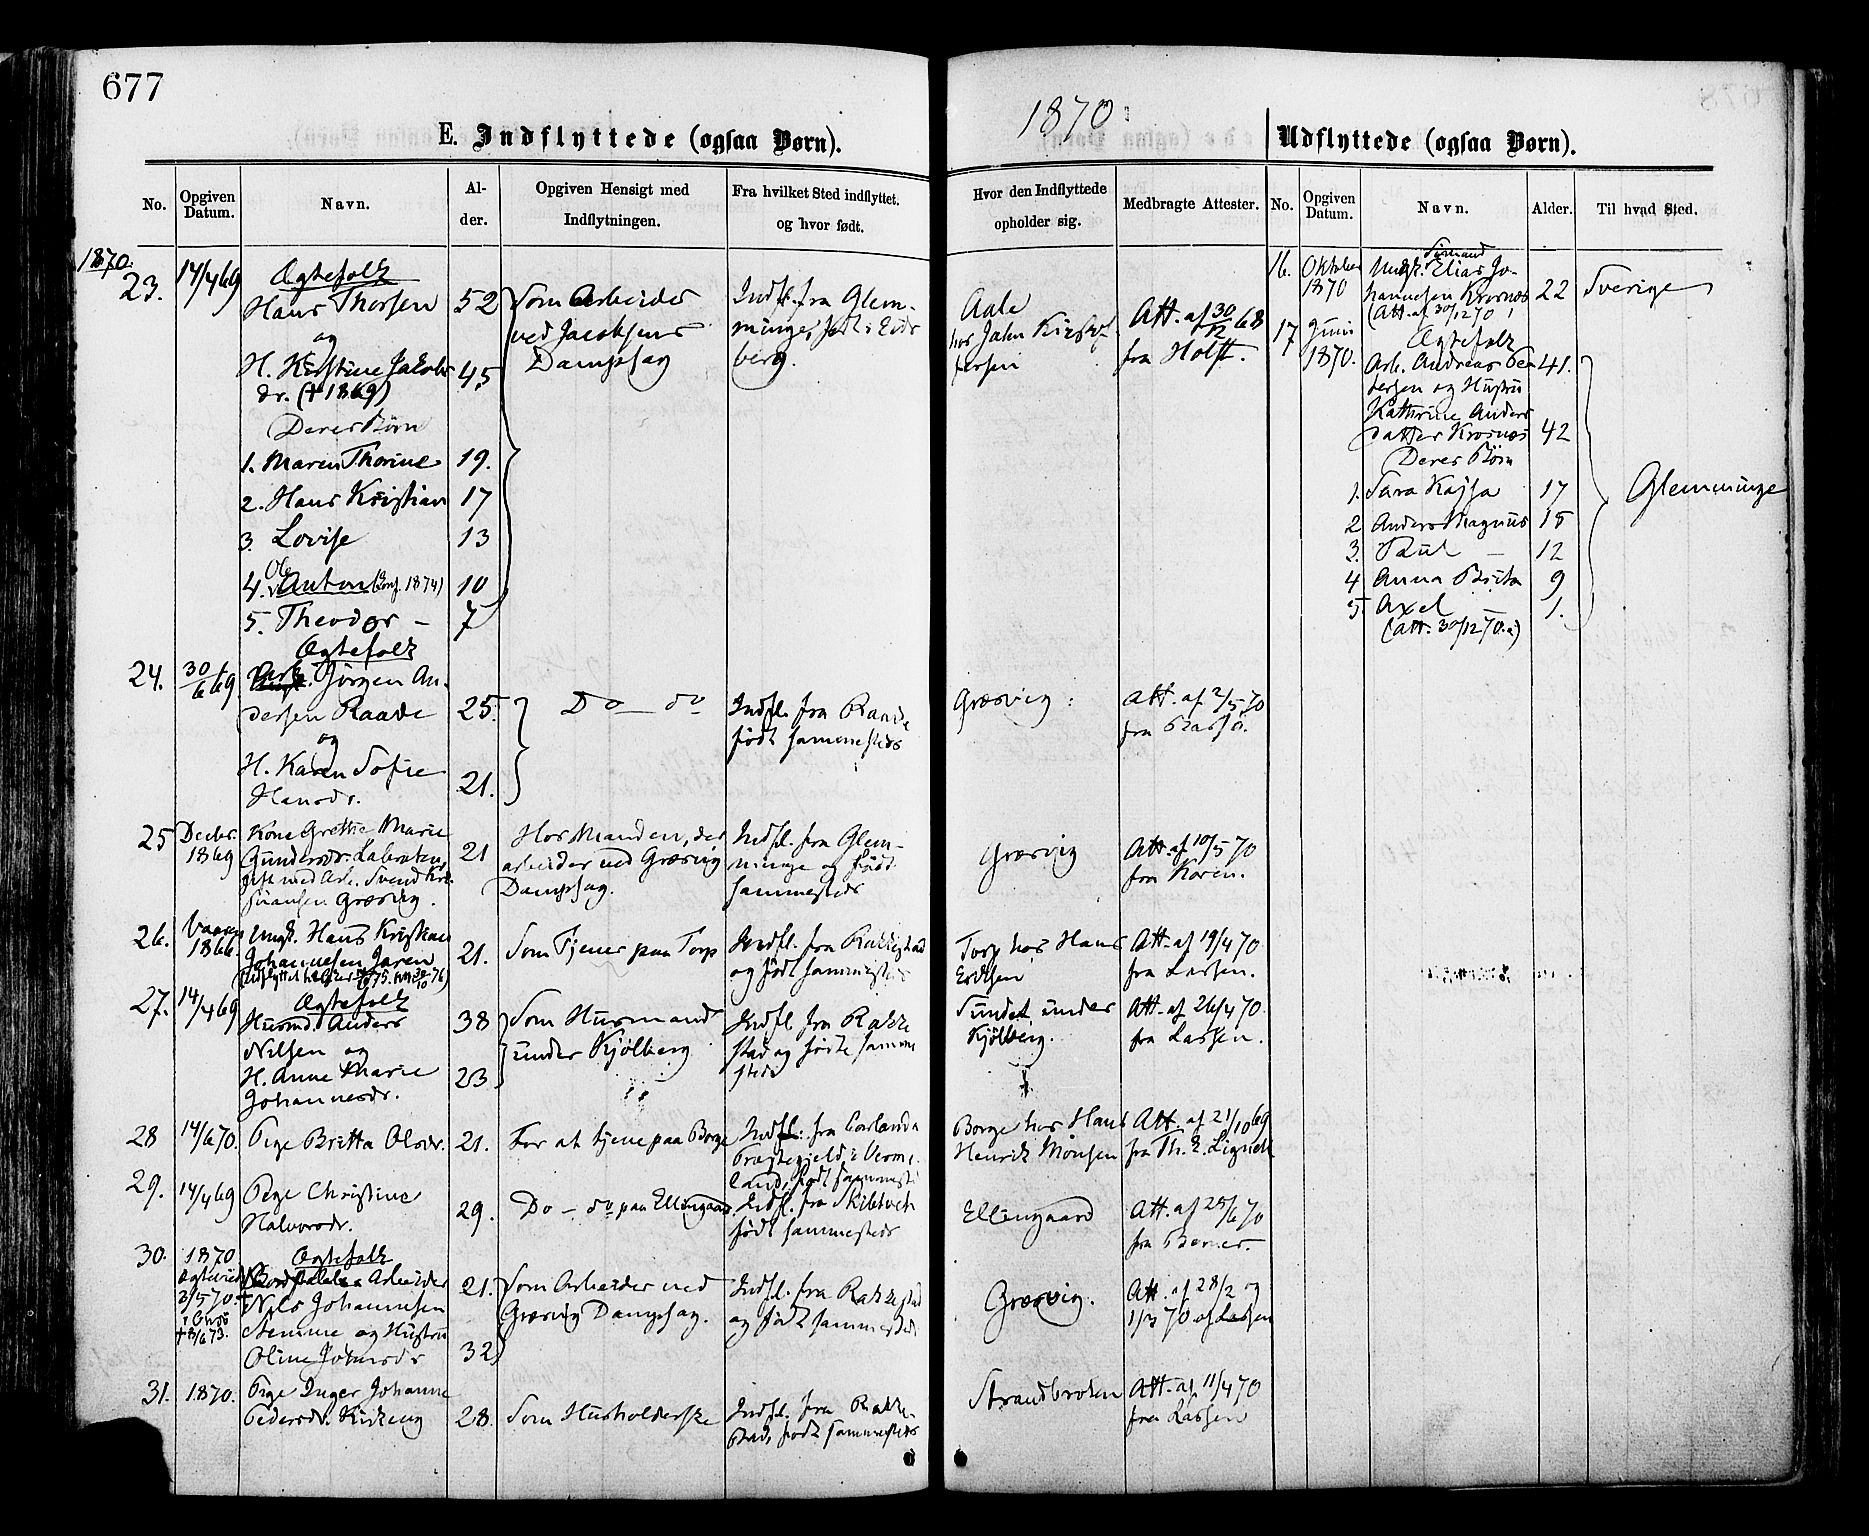 677
1870
E. Indflyttede (ogsaa Børn).
No.
Opgiven Datum.
Navn.
Al-
der.
Opgiven Hensigt med
Indflytningen.
Fra hvilket Sted indflyttet.
og hvor født.
Hvor den Indflyttede
opholder sig.
Medbragte Attester.
1870.
23.
14/4 69
Ægtefolk
Hans Thorsen
52
og
H. Kirstine Jakobs
dr. (+ 1869)
45
Deres Børn
1. Maren Thorine 19.
2. Hans Kristian 17
3. Lovise 13
4. Ole Anton (Conf. 1874) 10
5. Theodor – 7
Som Arbeider
ved Jacobsens
Dampsag
Indfl. fra Glem-
minge, født i Eids
berg.
Aale
hos Jahn
Att. af 30/12 68
fra Holst.
24.
30/6 69
Ægtefolk
Arb. Jørgen An-
dersen Raade
25.
og
H. Karen Sofie
Hansdr.
21.
Do — do
Indfl. fra Raade
født sammesteds
Græsvig
Att. af 2/5 70
fra
25
Decbr.
1869
Kone Grethe Marie
Gundersdr.
gift med Arb. Svend Kri-
stiansen Græsvig.
21
Hos Manden, der
arbeider ved Græsvig
Dampsag.
Indfl. fra Glem-
minge og født
sammesteds
Græsvig
Att. af 10/5 70
fra Koren.
26.
Vaaren
1866.
Ungk. Hans Kristian
Johannesen Jaren
21.
Som Tjener paa Torp
Indfl. fra Rakkestad
og født sammesteds
Torp hos Hans
Eriksen
Att. af 19/4 70
fra Lassen.
27.
14/4 69
Ægtefolk
Husmd. Anders
Nilsen og
38
H. Anne Marie
Johannesdr.
23
Som Husmand
under Kjølberg
Indfl. fra Rakke
stad og fødte samme
steds
Sundet under
Kjølberg.
Att. af 26/4 70.
fra Lassen.
28
14/6 70.
Pige Britta Olsdr.
21.
For at tjene paa Borge
Indfl. fra
Præstegjeld i Verme
land, født sammest.
Borge hos Hans
Henrik Monsen
Att. af 21/10 69
fra Th. E.
29.
14/4 69
Pige Christine
Halvorsdr.
29.
Do – do paa Ellingaard.
Indfl. fra Skibtveth
født sammesteds
Ellingaard
Att. af 25/6 70
fra
30.
1870
Ægteviede
3/5 70.
Ægtefolk
Arbeider
Nils Johannesen
21.
og Hustru
Oline
32
Som Arbeider ved
Græsvig Dampsag.
Indfl. fra Rakkestad
og født sammesteds
Græsvig.
Att. af 28/2 og
70 af Lassen
31.
1870.
Pige Inger Johanne
Pedersdr.
28.
Som Husholderske
Indfl. fra Rakke-
stad, født sammesteds
Strandbroten
Att. af 11/4 70
fra Lassen
Udflyttede (ogsaa Børn).
No.
Opgiven Datum.
Navn.
Alder.
Til hvad Sted.
16.
Oktober
1870
Sømand
Ungk. Elias Jo-
hannesen Krosnæs
(Att. af 30/12 70)
22
Sverige
17
Juni
1870.
Ægtefolk
Arb. Andreas Pe-
dersen og Hustru
41.
Kathrine Anders
datter Krosnæs
42
Deres Børn
1. Sara Kajsa 17
2 Anders Magnus 15
3. Paul – 12
4 Anna Brita 9
5 Axel – 1.
(Att. 30/12 70.)
Glemminge